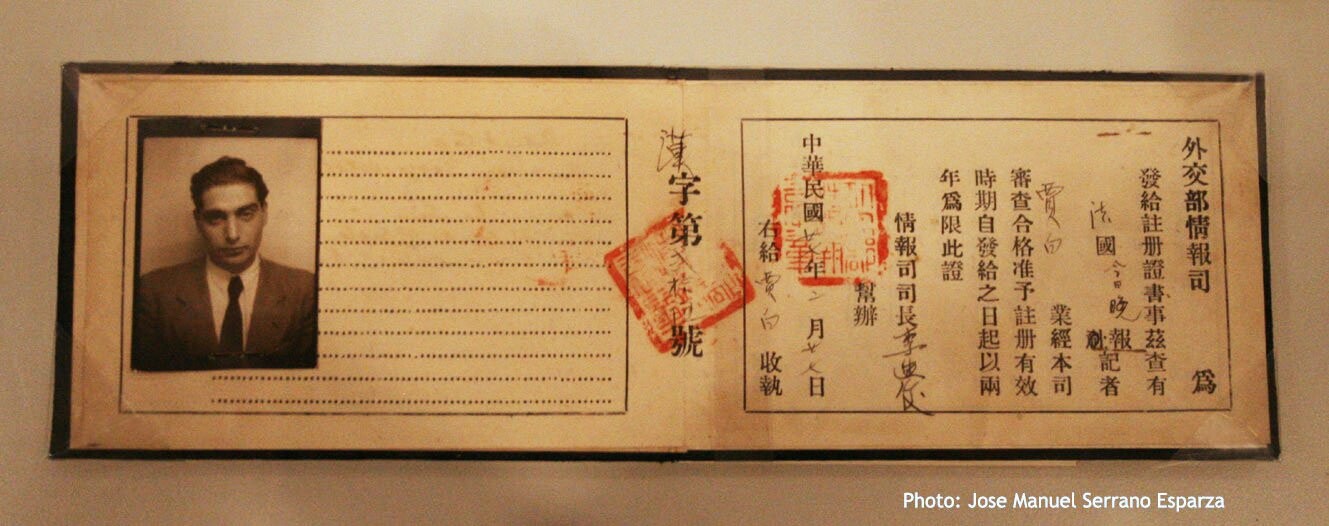 外交部情報司 爲
發給註册證書事茲查有
法國今日晚報記者
賈白 業經本司
審查合格准予註册有效
時期自發給之日起以兩
年爲限此證
情報司司長李迪俊
幫辦
中華民國廿七年二月日
右給賈白收執
漢字第號
Photo: Jose Manuel Serrano Esparza